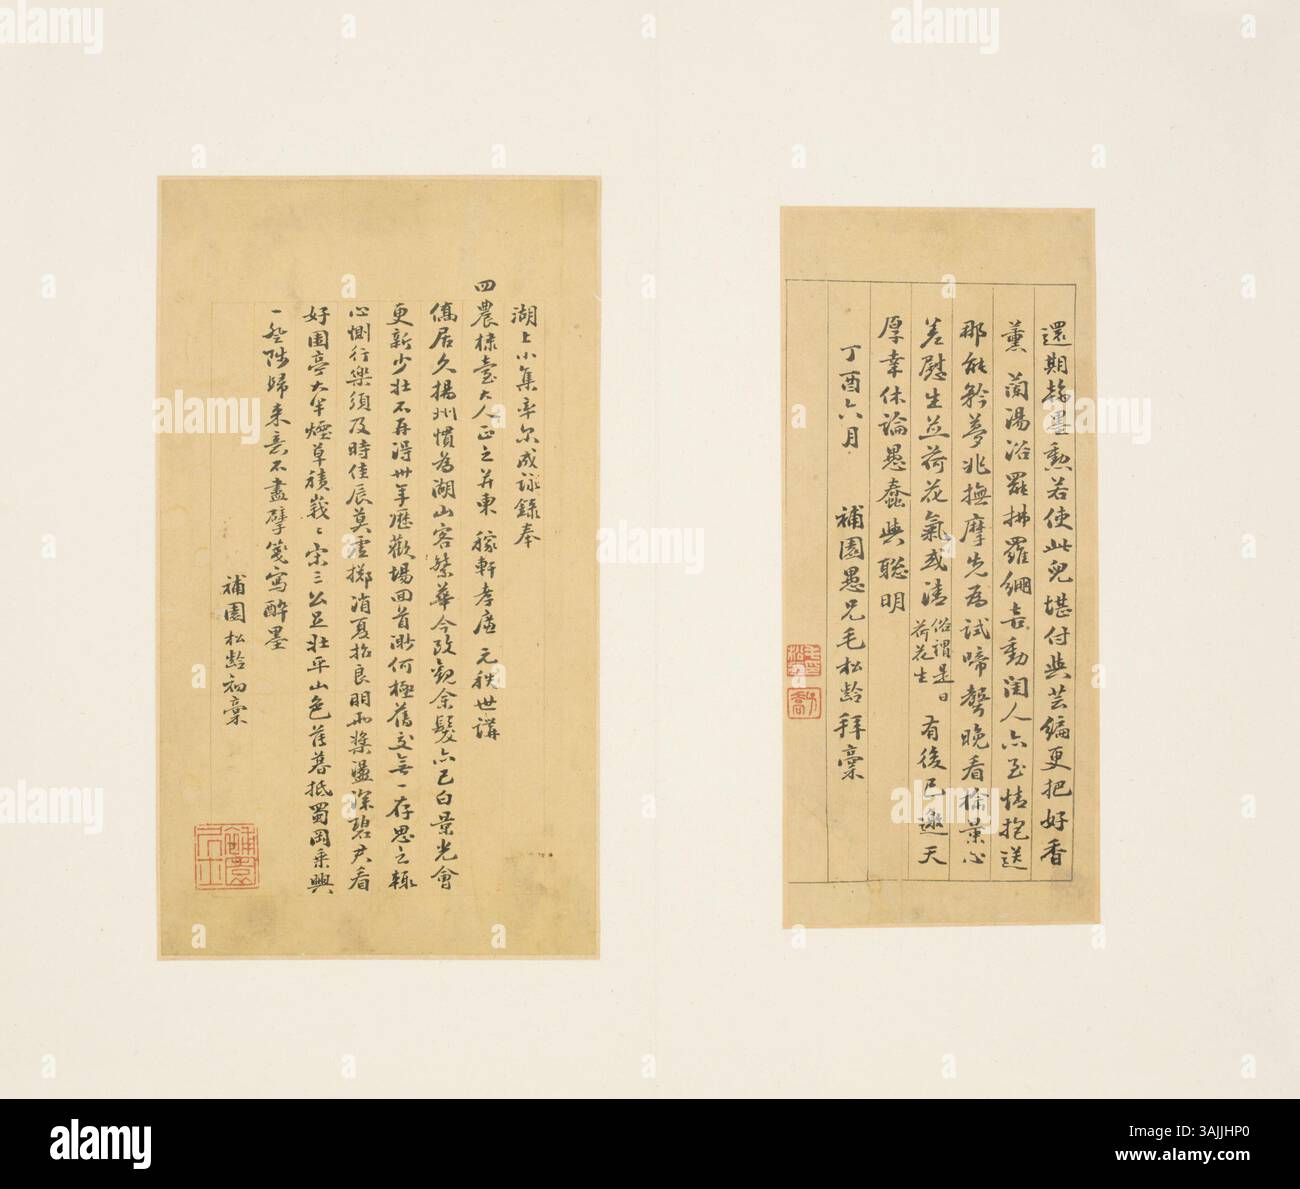 還期翰墨勳若使此兒堪付與芸編更把好香
薰 蘭湯浴罷拂羅綳喜動闺人亦至情抱送
那能矜夢兆撫摩先為試啼聲晚看掄景心
差慰生並荷花氣或清俗謂是日荷花生 有後已邀天
厚幸休論愚蠢與聰明
丁酉六月 補園愚兄毛松齡拜稾
湖上小集率尔成詠錄奉
四農棣臺大人正之并柬 稼軒孝廉 元秩世講
僑居久揚州慣為湖山客繁華今改觀余髮亦已白景光會
更新少壯不再得卅年歷歡場回首渺何極舊交無一存思之輒
心惻行樂須及時佳辰莫虛擲消夏招良朋兩槳盪深碧共看
好園亭大半煙草積巍々宋三公足壯平山色薄暮抵蜀岡乘興
一登陟歸來意不盡擘箋寫醉墨
補園松齡初稾
alamy
a
alamy
Image ID: 3AJJHP0
www.alamy.com